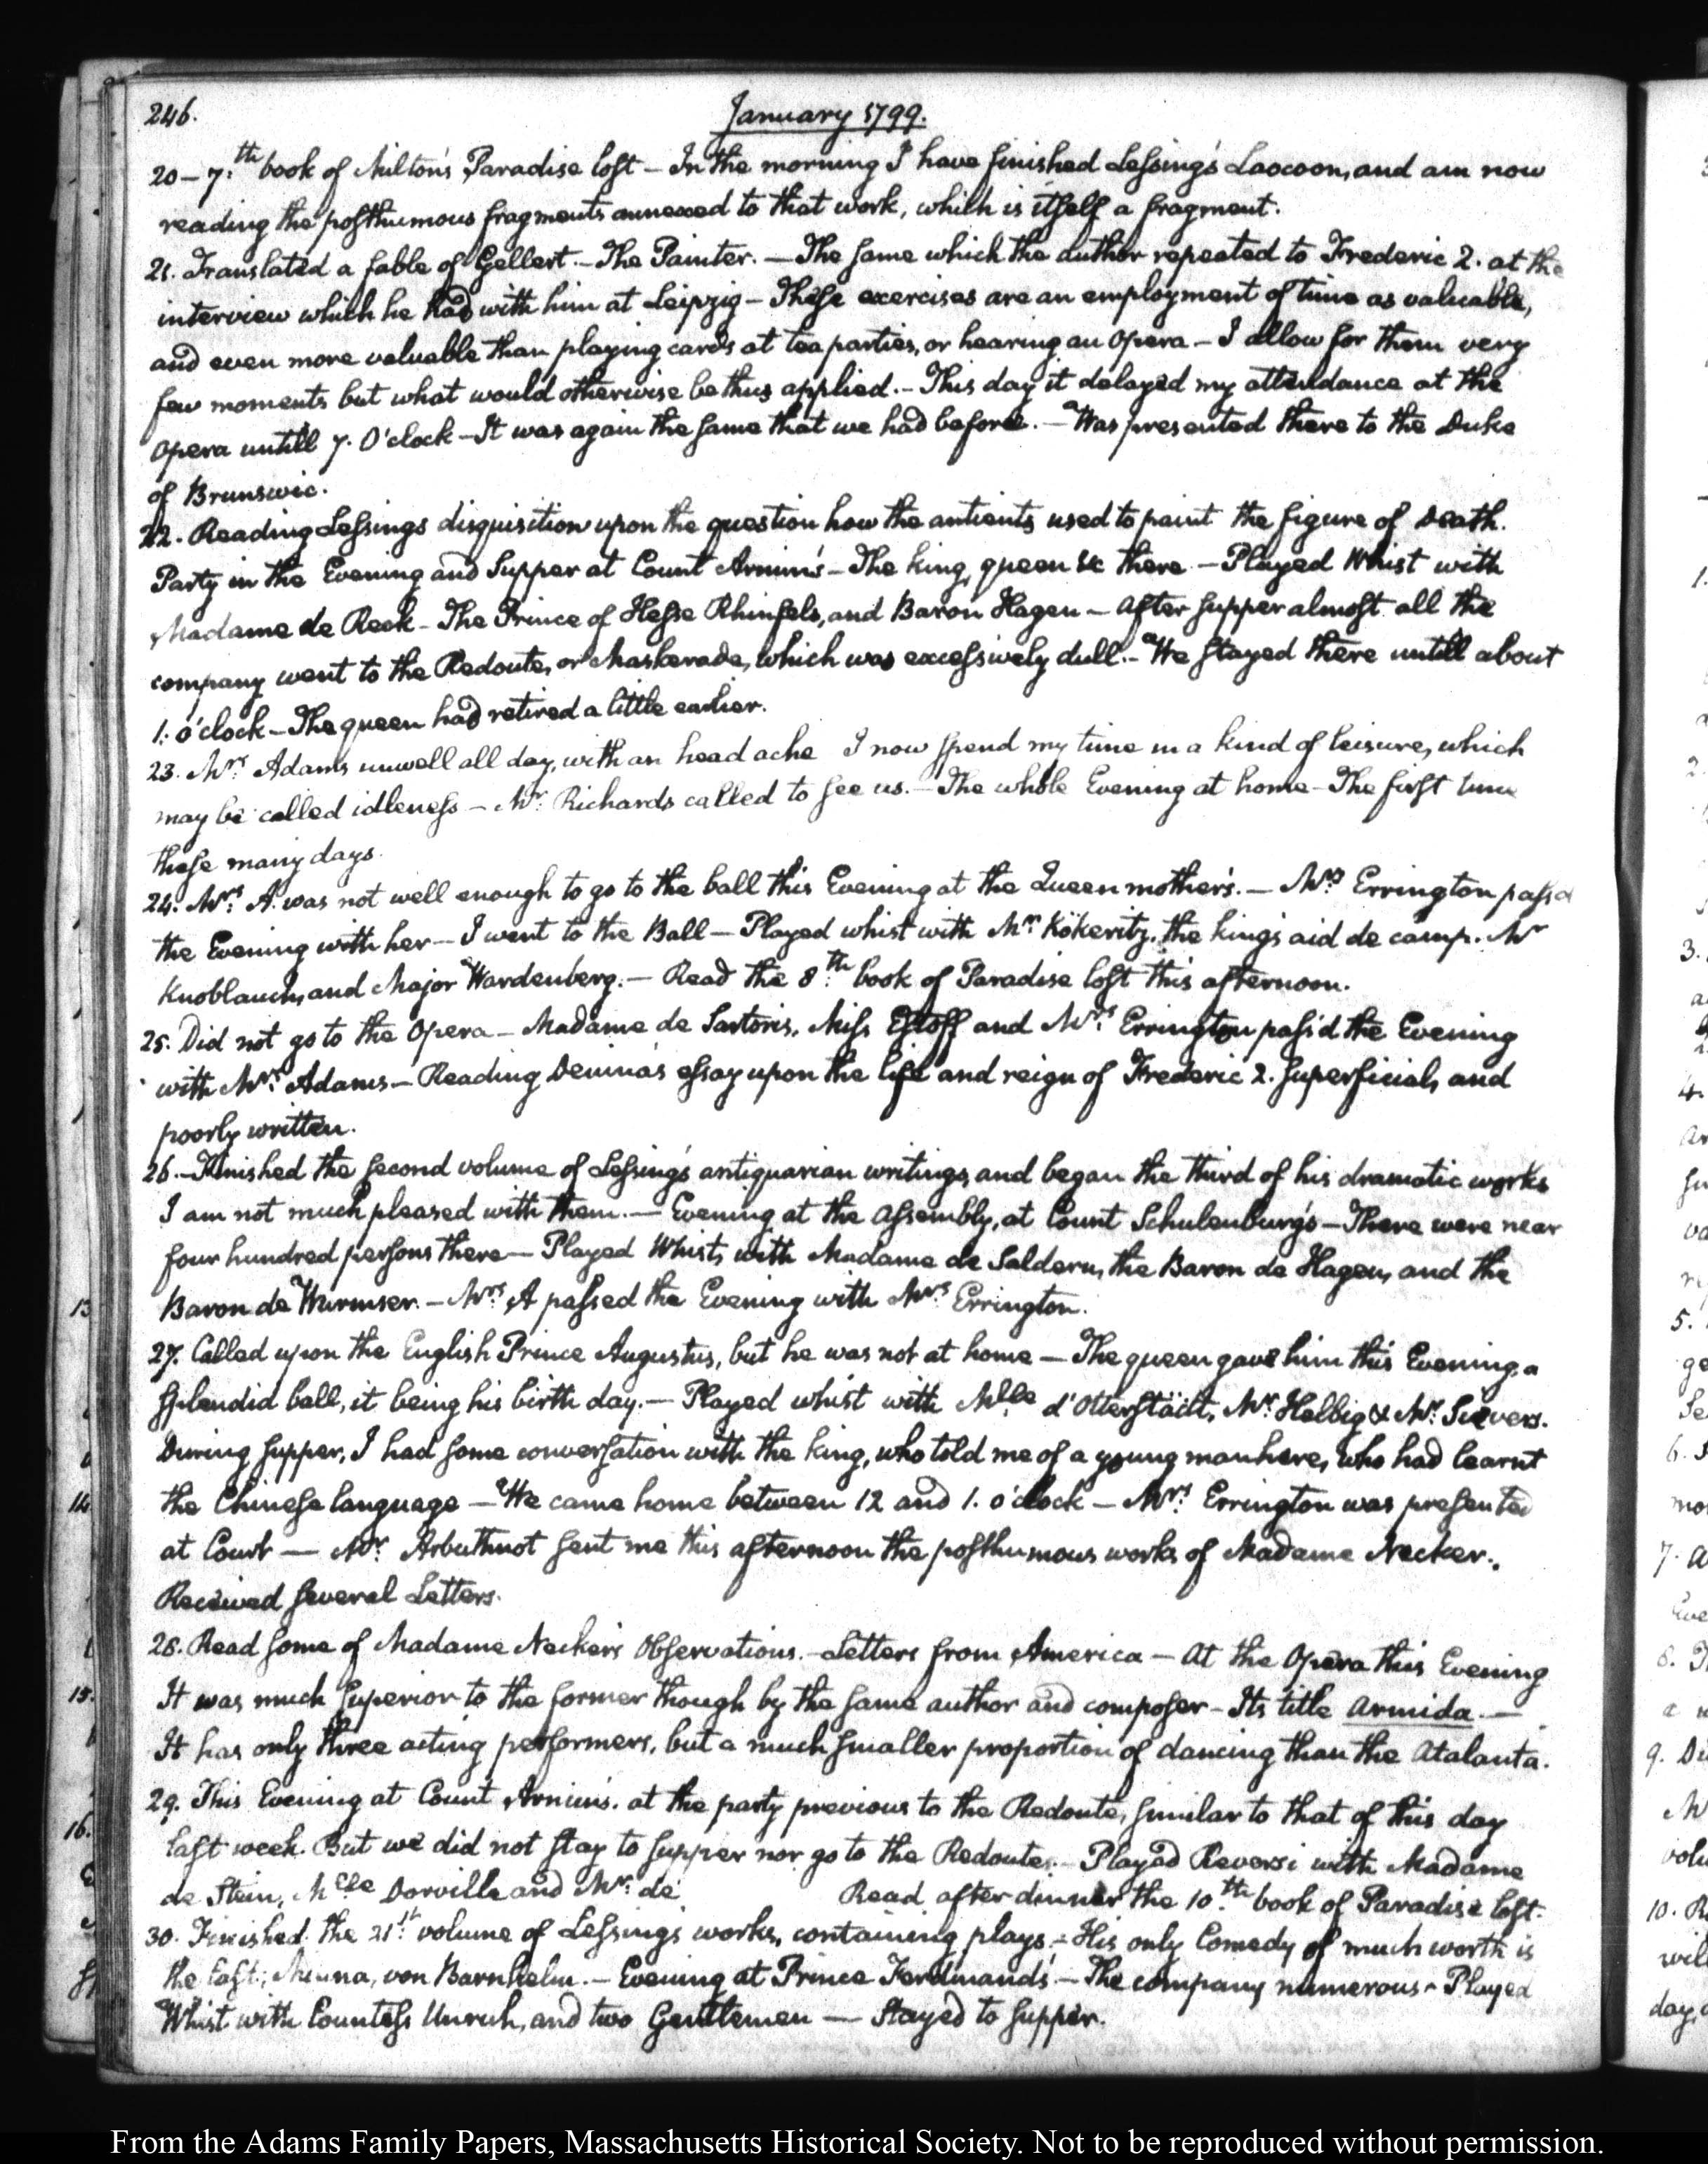 246.
January 1799.
20 - 7.th book of Milton's Paradise lost - In the morning I have finished Lessing's Laocoon, and am now
reading the posthumous fragments annexed to that work, which is itself a fragment.
21. Translated a fable of Gellert. - The Painter. - The same which the author repeated to Frederic 2. at the
interview which he had with him at Leipzig - These exercises are an employment of time as valuable,
and even more valuable than playing cards at tea parties, or hearing an Opera - I allow for them very
few moments but what would otherwise be thus applied. - This day it delayed my attendance at the
Opera untill 7. O'clock - It was again the same that we had before. - Was presented there to the Duke
of Brunswic.
22. Reading Lessings disquisition upon the question how the antients used to paint the figure of Death.
Party in the Evening and Supper at Count Arnim's - The king, queen &c there - Played Whist with
Madame de Reck - The Prince of Hesse Rhinfels, and Baron Hagen - After supper almost all the
company went to the Redoute, or Maskerade, which was excessively dull. - We stayed there untill about
1. o'clock - The queen had retired a little earlier.
23. Mrs. Adams unwell all day, with an head ache I now spend my time in a kind of leisure, which
may be called idleness - Mr. Richards called to see us. - The whole Evening at home - The first time
these many days.
24. Mrs. A. was not well enough to go to the ball this Evening at the Queen mother's. - Mrs Errington pass'd
the Evening with her - I went to the Ball - Played whist with Mr. Kökeritz, the king's aid de camp. Mr
Knoblauch, and Major Wardenberg. - Read the 8.th book of Paradise lost this afternoon.
25. Did not go to the Opera - Madame de Sartoris, Miss Estoff and Mrs. Errington pass'd the Evening
with Mrs. Adams - Reading Denina's essay upon the life and reign of Frederic 2. superficial, and
poorly written.
26. - Finished the second volume of Lessing's antiquarian writings, and began the third of his dramatic works
I am not much pleased with them. - Evening at the assembly, at Count Schulenburg's - There were near
four hundred persons there - Played Whist, with Madame de Saldern, the Baron de Hagen, and the
Baron de Wurmser. - Mrs. A passed the Evening with Mrs. Errington.
27. Called upon the English Prince Augustus, but he was not at home - The queen gave him this Evening, a
splendid ball, it being his birth day. - Played whist with Mlle d'Otterstädt, Mr. Helbig & Mr. Sievers.
During supper, I had some conversation with the king, who told me of a young man here, who had learnt
the Chinese language - We came home between 12 and 1. o'clock - Mrs. Errington was presented
at Court - Mr. Arbuthnot sent me this afternoon the posthumous works of Madame Necker.
Received several Letters.
28. Read some of Madame Necker's Observations. - Letters from America - At the Opera this Evening
It was much superior to the former though by the same author and composer - Its title Armida. -
It has only three acting performers, but a much smaller proportion of dancing than the Atalanta.
29. This Evening at Count Arnim's. at the party previous to the Redoute, similar to that of this day
last week. But we did not stay to supper nor go to the Redoute. - Played Reversi with Madame
de Stein, Mlle Dorville and Mr. de Read after dinner the 10.th book of Paradise lost.
30. Finished the 21st. volume of Lessing's works, containing plays, - His only Comedy of much worth is
the last; Minna, von Barnhelm. - Evening at Prince Ferdinand's - The company numerous - Played
Whist with Countess Unruh, and two Gentlemen - Stayed to supper.
From the Adams Family Papers, Massachusetts Historical Society. Not to be reproduced without permission.